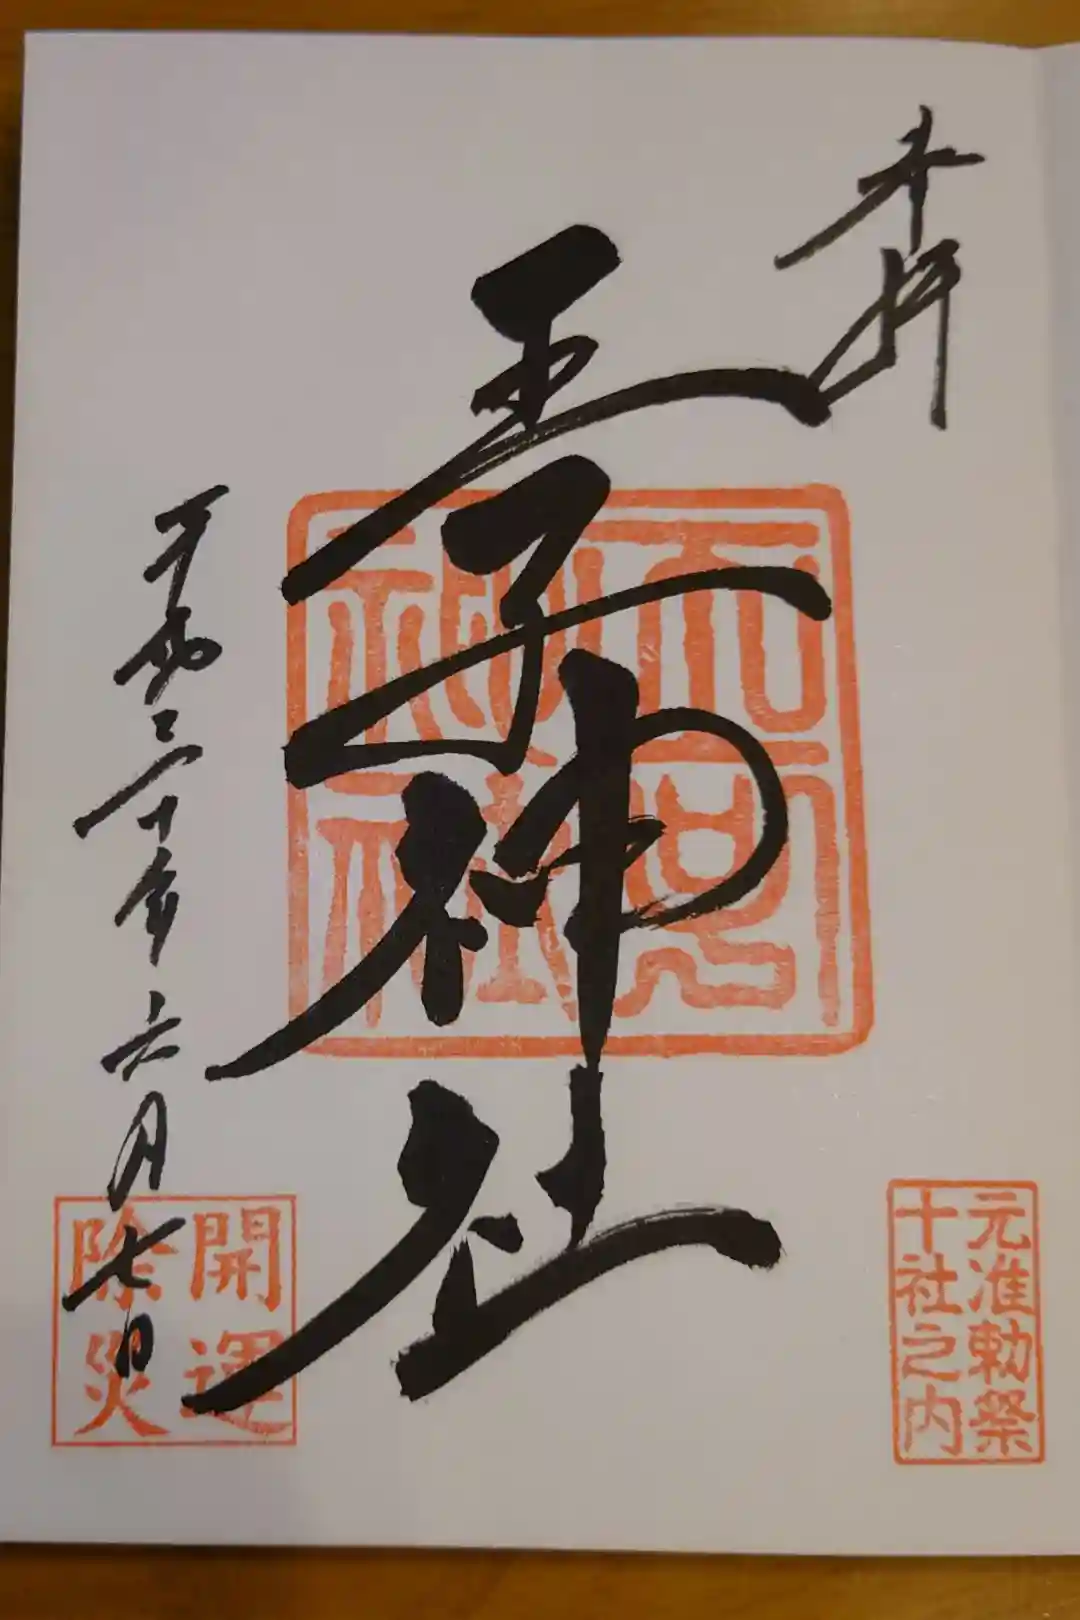 奉拝
王子神社
王子
神社
平成三十年六月七日
元准勅祭
十社之内
開運
除災